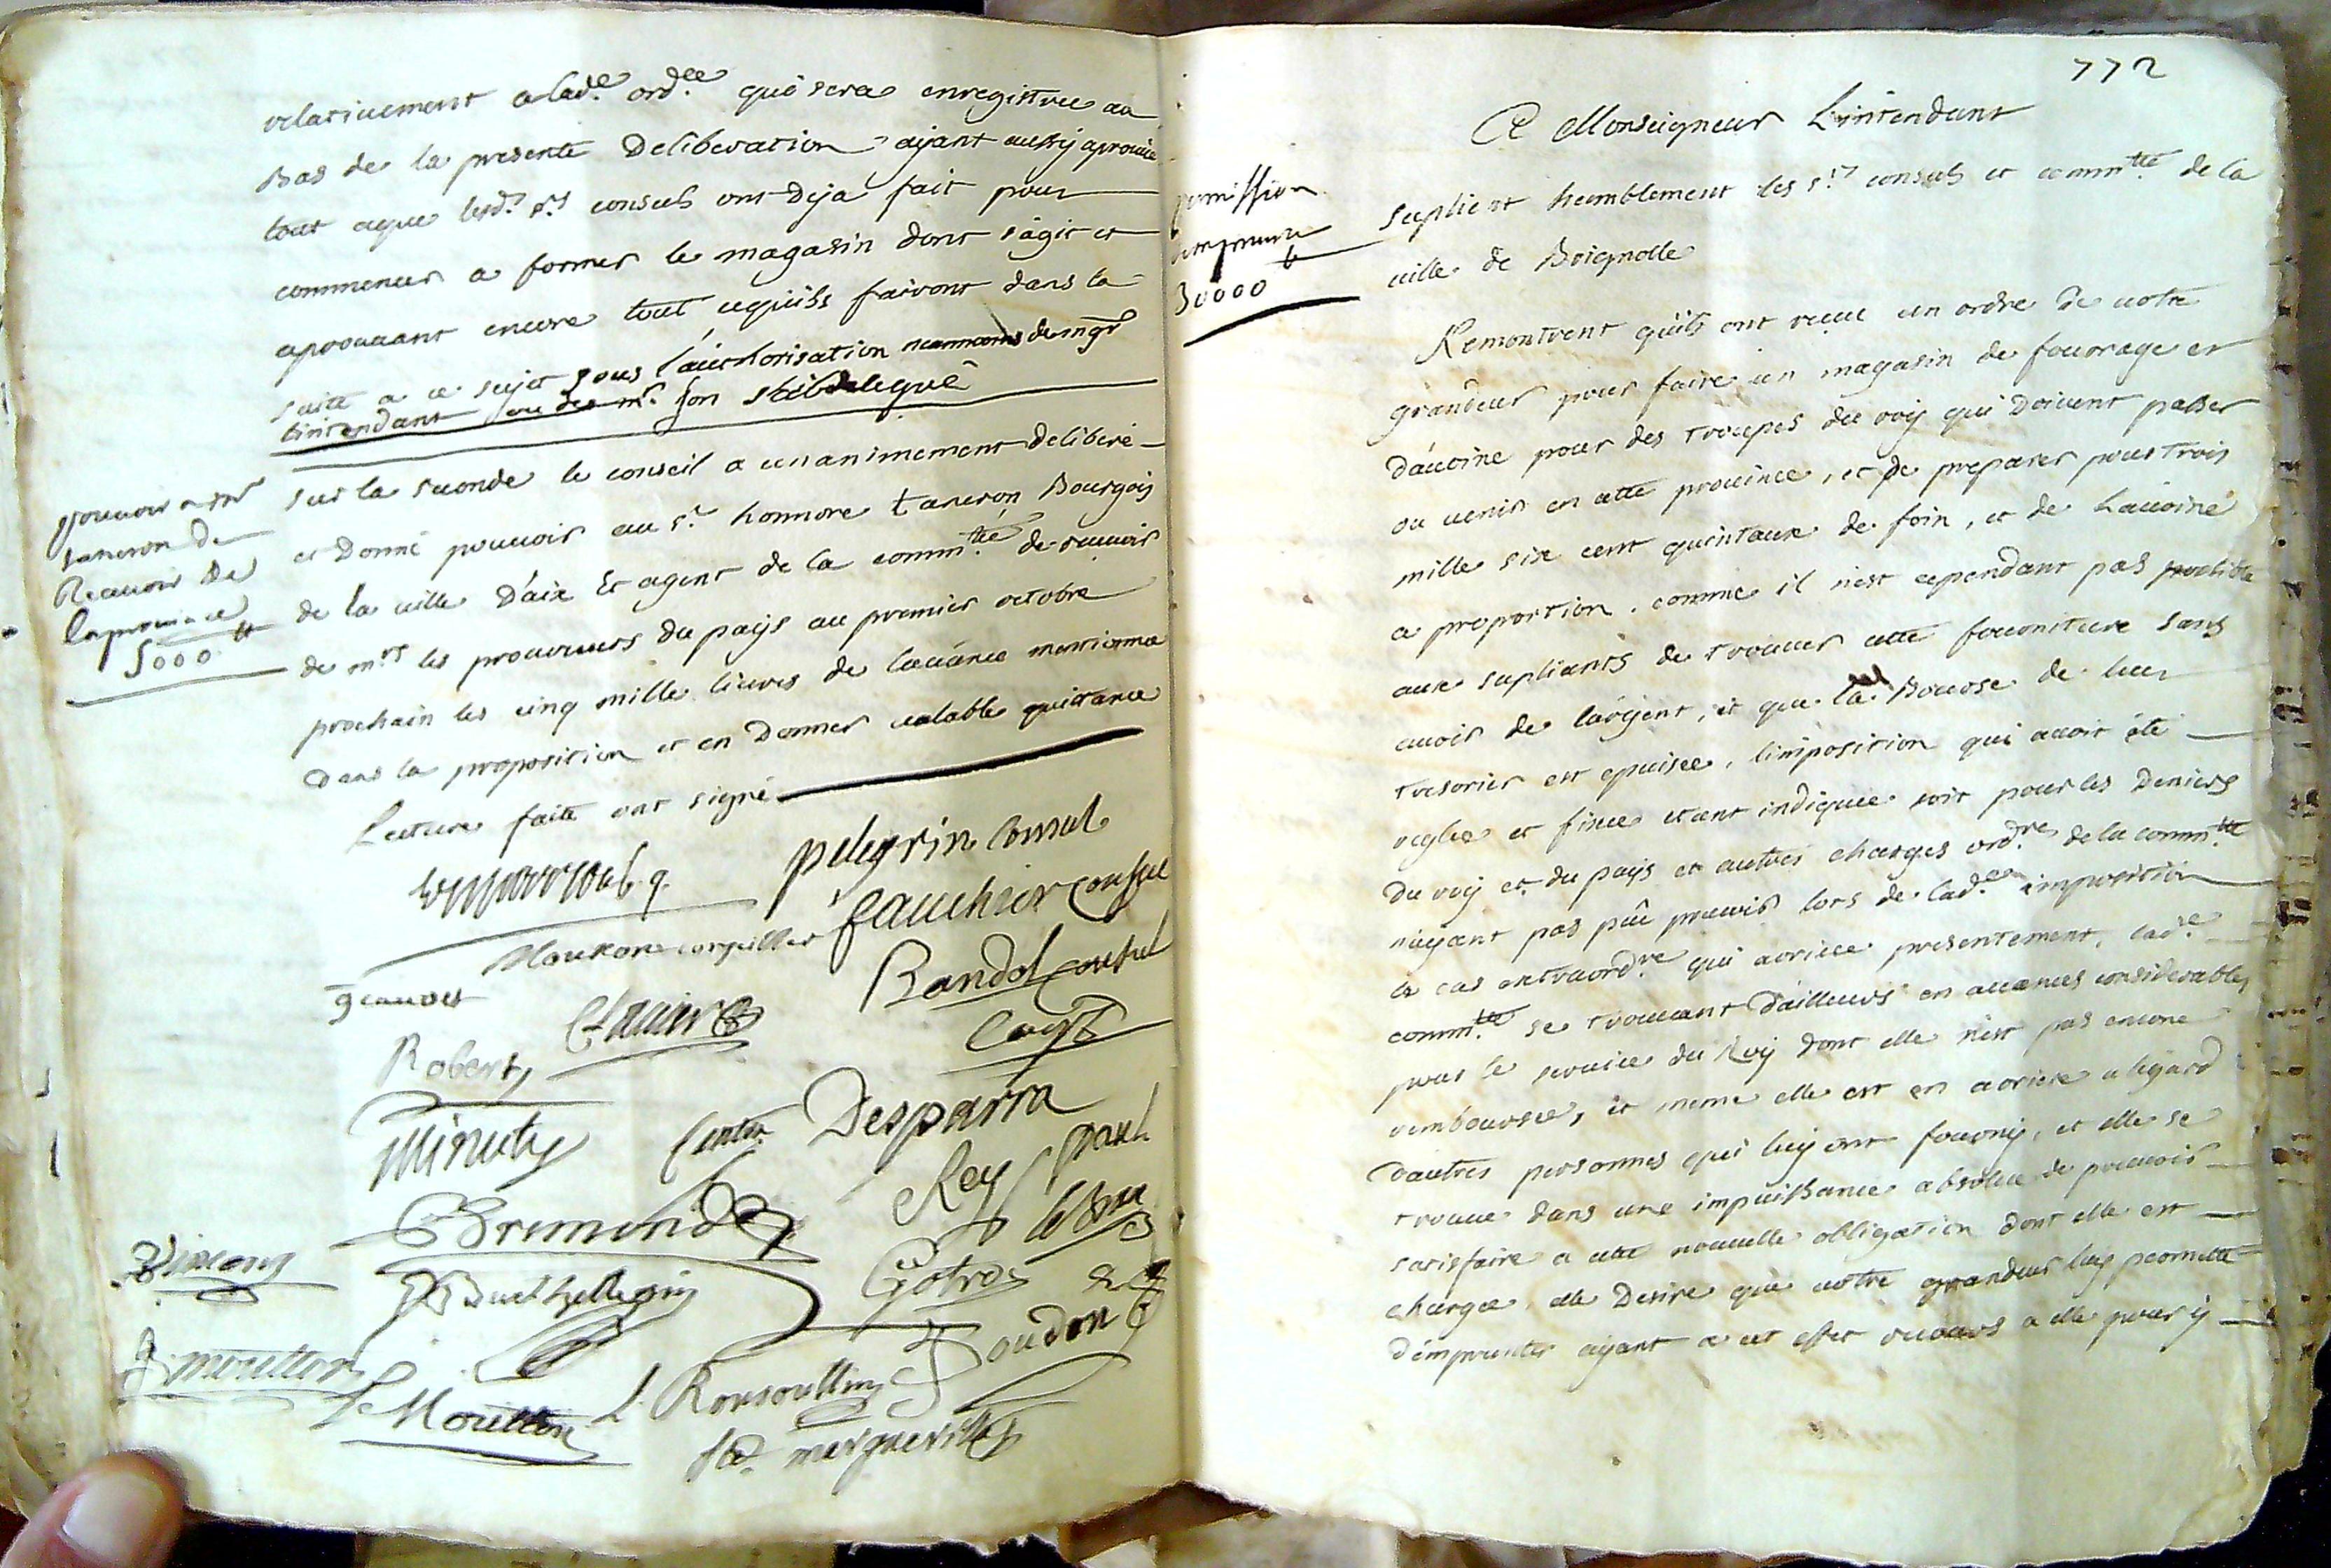 relativement a lad.e ord.ce qui sera enregistree au
Bas de la presente Deliberation ajant aussy aprouvé
tout ceque lesd.s s.rs consuls ont Deja fait pour
commencer a former le magasin dont s'agit et
aprouvant encore tout cequ'ils fairont dans la
suite a ce sujet sous l'authorisation neanmoins de mgr
lintendant ou de m.r son subdelegué
pouvoir a mr
taneron de
Recevoir De
la province
5000 ₶
sur la seconde le conseil a unanimement deliberé
et Donné pouvoir au s.r honnore taneron Bourgois
de la ville D'aix Et agent de la comm.tté de recevoir
de m.rs les procureurs du pays au premier octobre
prochain les cinq mille livres de l'avance mentionnée
Dans la proposition et en Donner valable quittance
Lecture faite ont signé
pelegrin Consul
fauchier Consul
Mouton conseiller
Bandol Consul
geauvet
Clavier
Robert
Minuty
Desparra
Rey
Brunond
Gotrou
moutton
Moutton
L. Ronsoullin
772
A Monseigneur L'intendant
permission
demprunter
30000 ₶
Suplient humblement les s.rs consuls et comm.tté de la
ville de Brignolle
Remontrent qu'ils ont reçue un ordre de votre
grandeur pour faire un magasin de fourage et
d'avoine pour des troupes du roy qui Doivent passer
ou venir en cette province, et de preparer pour trois
mille six cent quintaux de foin, et de L'avoine
a proportion. comme il n'est cependant pas possible
aux supliants de trouver cette fourniture sans
avoir de l'argent, et que la Bourse de leur
tresorier est epuisee, l'imposition qui avoit été
reglee et fixee etant indiquee soit pour les Deniers
Du roy et du pays et autres charges ord.res de la comm.tté
n'ayant pas pû prevoir lors de lad.e imposition
le cas extraord.re qui arrive presentement, lad.e
comm.tté se trouvant D'ailleurs en avances considerables
pour le service du Roy dont elle n'est pas encore
remboursee, et meme elle est en arriere a legard
d'autres personnes qui luy ont fourny, et elle se
trouve dans une impuissance absolue de pouvoir
satisfaire a cette nouvelle obligation dont elle est
chargee, elle Desire que votre grandeur luy permette
d'emprunter ajant a cet effet recours a elle pour y